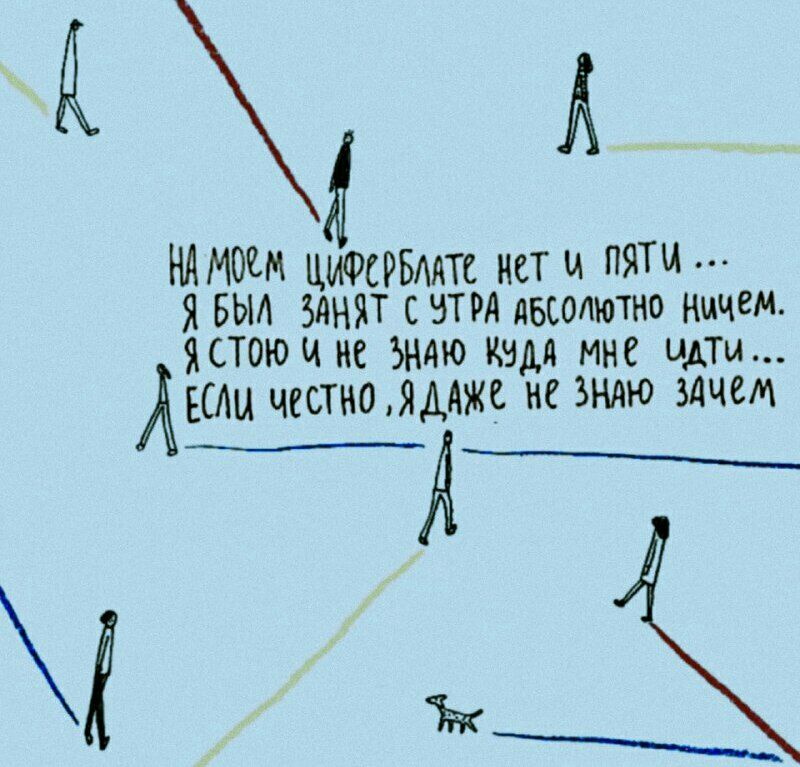 НА МОЕМ ЦИФЕРБЛАТЕ НЕТ И ПЯТИ ...
Я БЫЛ ЗАНЯТ С УТРА АБСОЛЮТНО НИЧЕМ.
Я СТОЮ И НЕ ЗНАЮ КУДА МНЕ ИДТИ...
ЕСЛИ ЧЕСТНО, Я ДАЖЕ НЕ ЗНАЮ ЗАЧЕМ